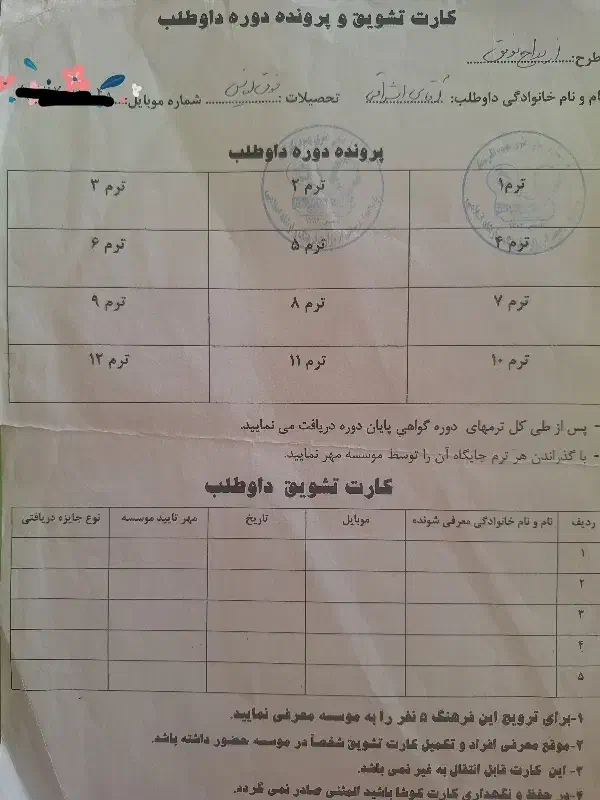 کارت تشویق و پرونده دوره داوطلب
طرح: ازدواج موفق
نام و نام خانوادگی داوطلب: آقای اشراقی تحصیلات: فوق لیسانس شماره موبایل:
پرونده دوره داوطلب
ترم ۱ ترم ۲ ترم ۳
ترم ۴ ترم ۵ ترم ۶
ترم ۷ ترم ۸ ترم ۹
ترم ۱۰ ترم ۱۱ ترم ۱۲
- پس از طی کل ترمهای دوره گواهی پایان دوره دریافت می نمایید.
- با گذراندن هر ترم جایگاه آن را توسط موسسه مهر نمایید.
کارت تشویق داوطلب
ردیف نام و نام خانوادگی معرفی شونده موبایل تاریخ مهر تایید موسسه نوع جایزه دریافتی
۱
۲
۳
۴
۵
۱-برای ترویج این فرهنگ ۵ نفر را به موسسه معرفی نمایید.
۲-موقع معرفی افراد و تکمیل کارت تشویق شخصاً در موسسه حضور داشته باشد.
۳- این کارت قابل انتقال به غیر نمی باشد.
۴-در حفظ و نگهداری کارت کوشا باشید المثنی صادر نمی گردد.